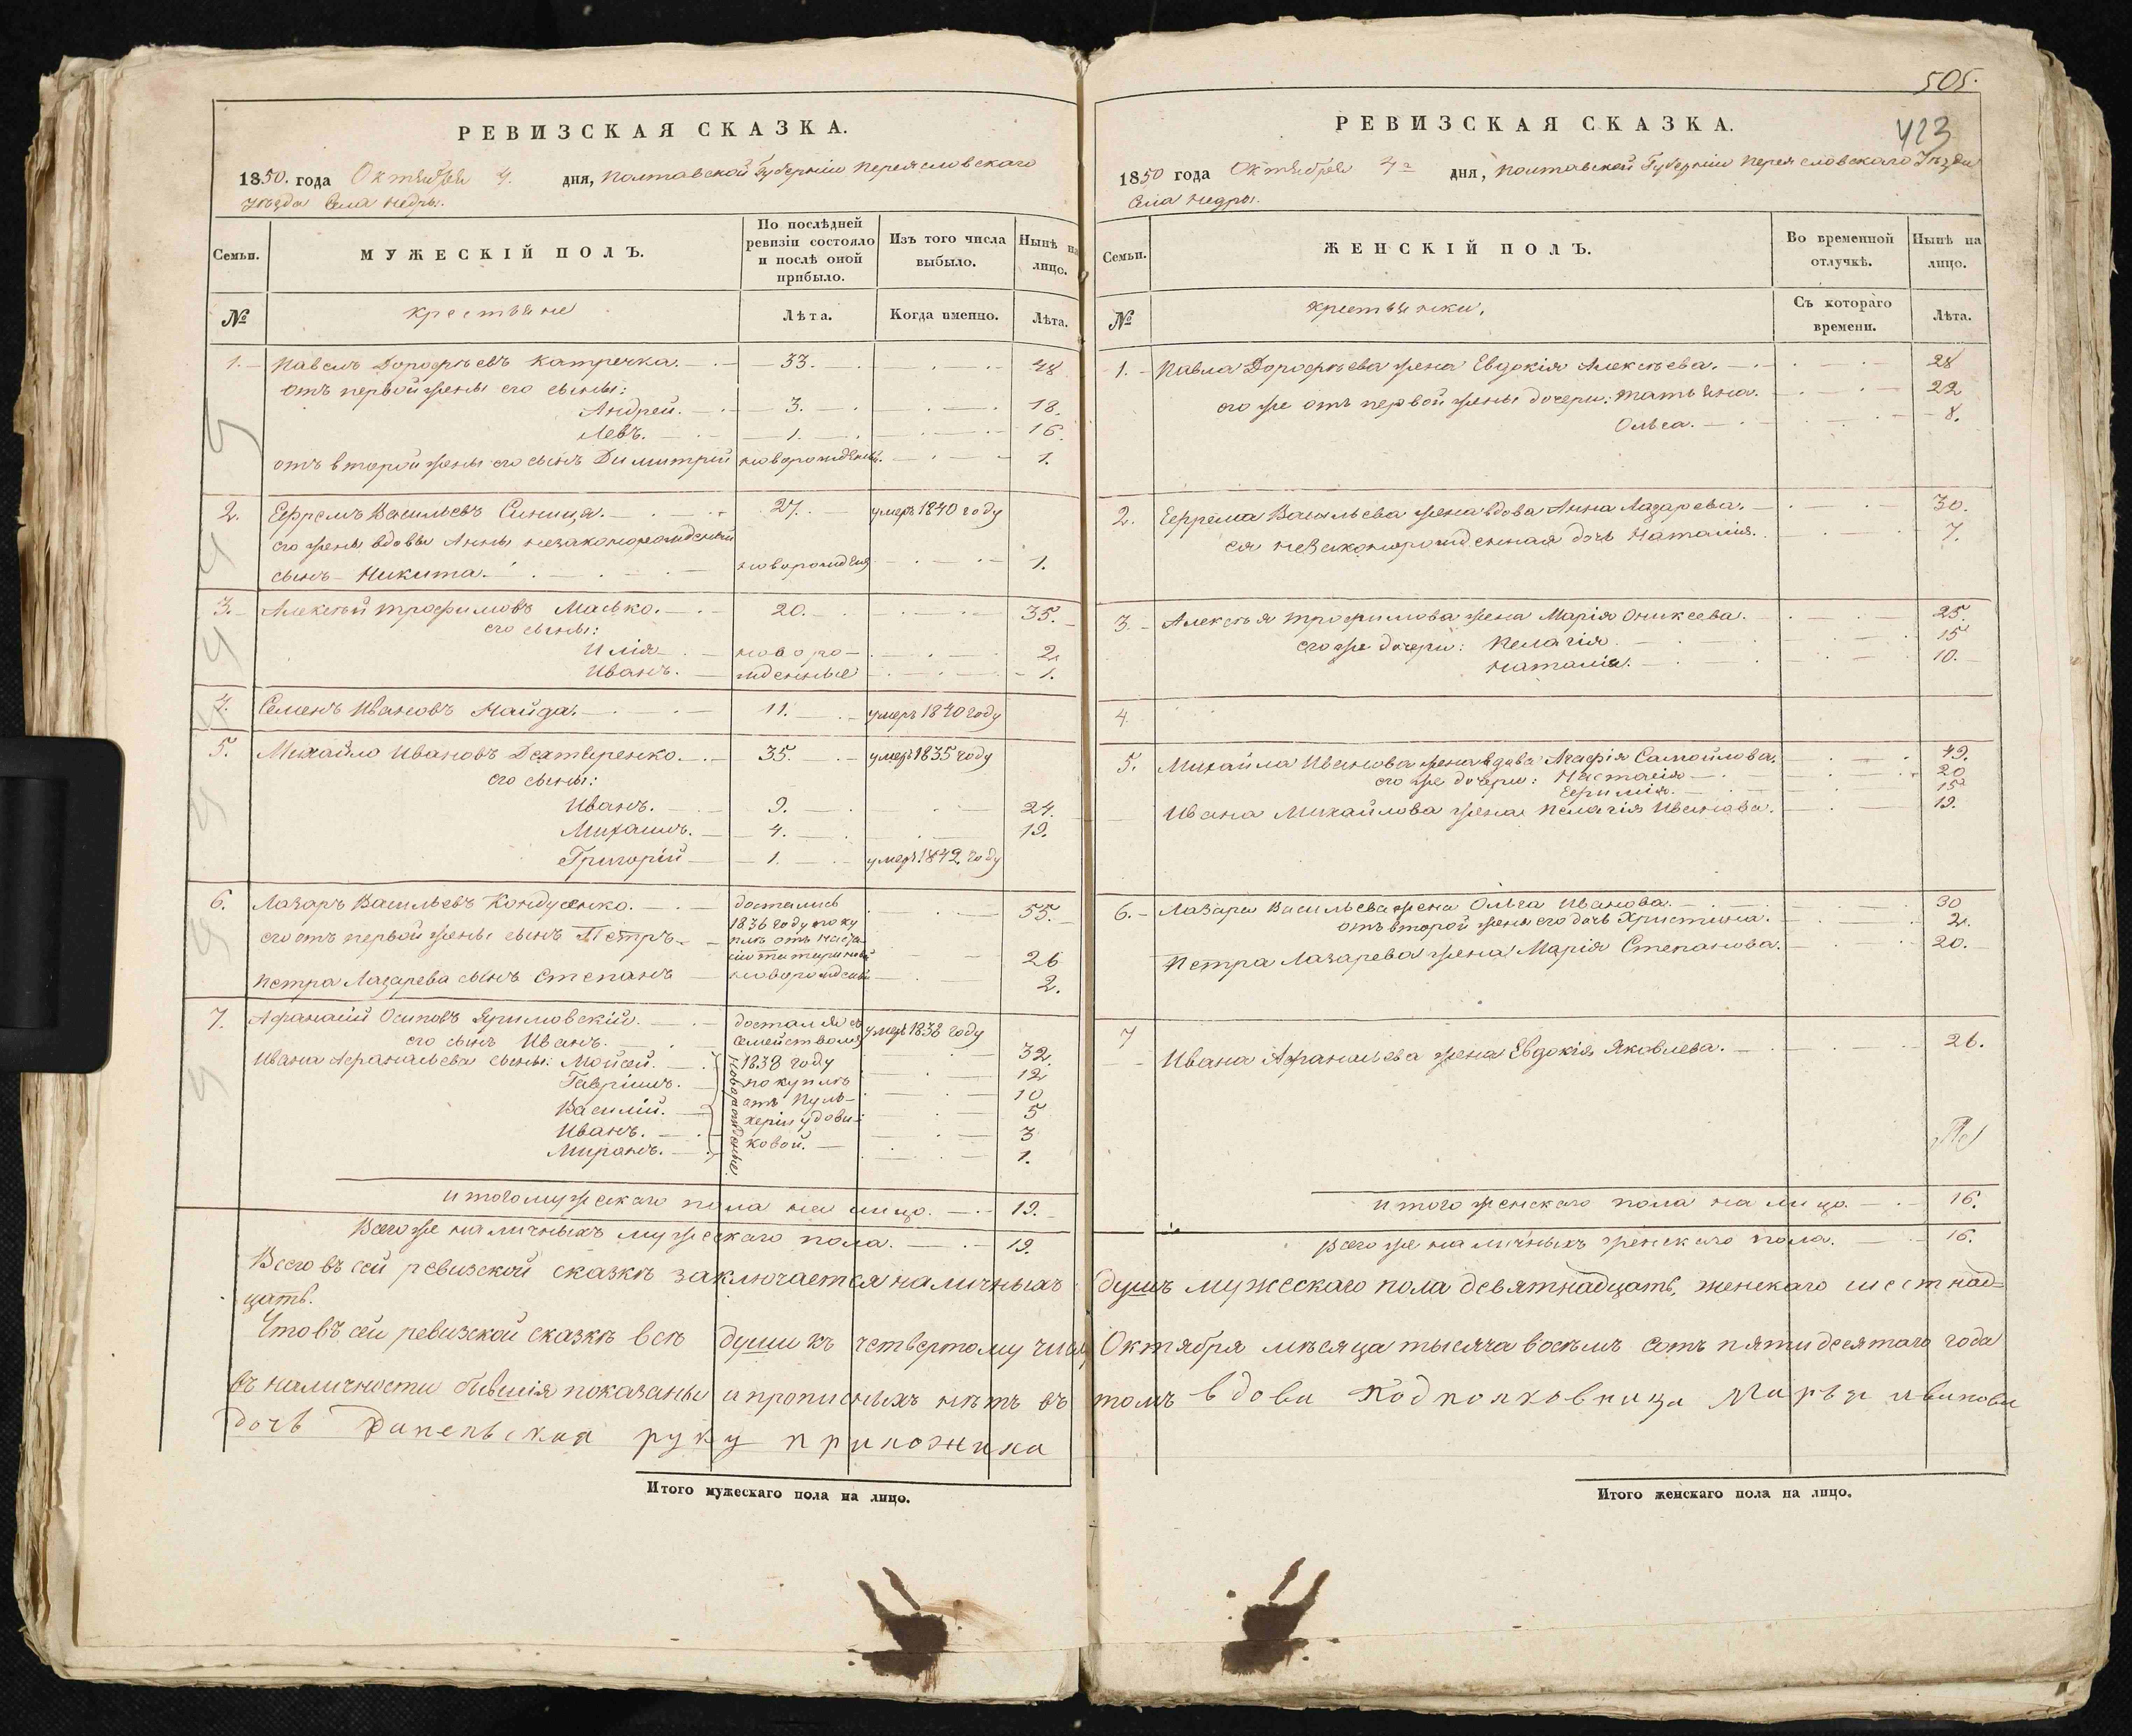 РЕВИЗСКАЯ СКАЗКА.
1850. года Октября 4. дня, Полтавской Губерніи Переясловскаго
уѣзда села Недры.
Семьи.
МУЖЕСКІЙ ПОЛЪ.
По послѣдней ревизіи состояло и послѣ оной прибыло.
Изъ того числа выбыло.
Нынѣ на лицо.
№
крестьяне
Лѣта.
Когда именно.
Лѣта.
1. Павелъ Дорофѣевъ Катречка. 33. 48
отъ первой жены его сыны:
Андрей. 3. 18.
Левъ. 1. 16.
отъ второй жены его сынъ Димитрій новорожденый. 1.
2. Ефремъ Васильевъ Синица. 27. умеръ 1840 году
его жены вдовы Анны незаконорожденый
сынъ Никита. новорожден 1.
3. Алексѣй Трофимовъ Малько. 20. 35.
его сыны:
Илія новоро- 2
Иванъ. жденные 1.
4. Семенъ Ивановъ Найда. 11. умеръ 1840 году
5. Михайло Ивановъ Дехтяренко. 35. умеръ 1835 году
его сыны:
Иванъ. 9. 24.
Михаилъ. 4. 19.
Григорій 1. умеръ 1842 году
6. Лазарь Васильевъ Кондусенко. достались 55.
1836 году поку
его отъ первой жены сынъ Петръ пкѣ отъ 26
Петра Лазарева сынъ Степанъ новорожденый 2.
7. Афанасій Осиповъ Яримовскій. достался съ умеръ 1838 году
его сынъ Иванъ. семействомъ 32.
Ивана Афанасьева сыны: Мойсей. 1838 году 12
Гавріилъ. покупкѣ 10
Василій. отъ Пуль- 5
Иванъ. херіи удови- 3
Миронъ. ковой. 1.
новорожденные
итого мужескаго пола на лицо. 19.
Всего же наличныхъ мужескаго пола. 19.
РЕВИЗСКАЯ СКАЗКА.
505.
423
1850 года Октября 4 дня, Полтавской Губерніи Переясловскаго Уѣзда
села Недры.
Семьи.
ЖЕНСКІЙ ПОЛЪ.
Во временной отлучкѣ.
Нынѣ на лицо.
№
крестьянки.
Съ котораго времени.
Лѣта.
1. Павла Дорофѣева жена Евдокія Алексѣева. 28
его же отъ первой жены дочери: Татьяна. 22
Ольга. 8.
2. Ефрема Васильева жена вдова Анна Лазарева. 30.
ея незаконорожденная дочь Наталія. 7.
3. Алексѣя Трофимова жена Марія Оникеева. 25.
его же дочери: Пелагія 15
Наталія. 10.
4.
5. Михайла Иванова жена вдова Агафія Самойлова. 49.
его же дочери: Настасія 20
Ефимія. 15
Ивана Михайлова жена Пелагія Иванова. 19.
6. Лазаря Васильева жена Ольга Иванова. 30
отъ второй жены его дочь Христина. 2.
Петра Лазарева жена Марія Степанова. 20.
7
Ивана Афанасьева жена Евдокія Яковлева. 26.
итого женскаго пола на лицо. 16.
Всего же наличныхъ женскаго пола. 16.
Всего въ сей ревизской сказкѣ заключается наличныхъ душъ мужескаго пола девятнадцать, женскаго шестнад=
цать.
Что въ сей ревизской сказкѣ всѣ души къ четвертому числу Октября мѣсяца тысяча восемь сотъ пятидесятаго года
въ наличности бывшія показаны и прописныхъ нѣтъ въ томъ вдова Подполковница Марья Иванова
дочь руку приложила
Итого мужескаго пола на лицо.
Итого женскаго пола на лицо.